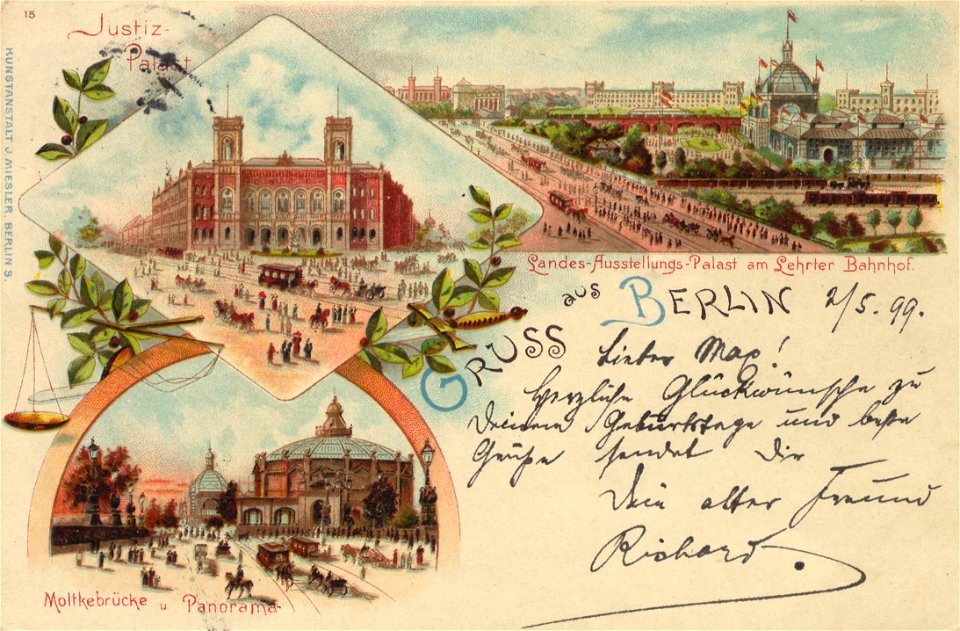 15
Justiz-
Palast
KUNSTANSTALT J. MIESLER, BERLIN S.
Landes-Ausstellungs-Palast am Lehrter Bahnhof.
GRUSS aus BERLIN 2/5.99.
Lieber Max!
Herzliche Glückwünsche zu
Deinem Geburtstage und beste
Grüße sendet Dir
Dein alter Freund
Richard
Moltkebrücke u Panorama